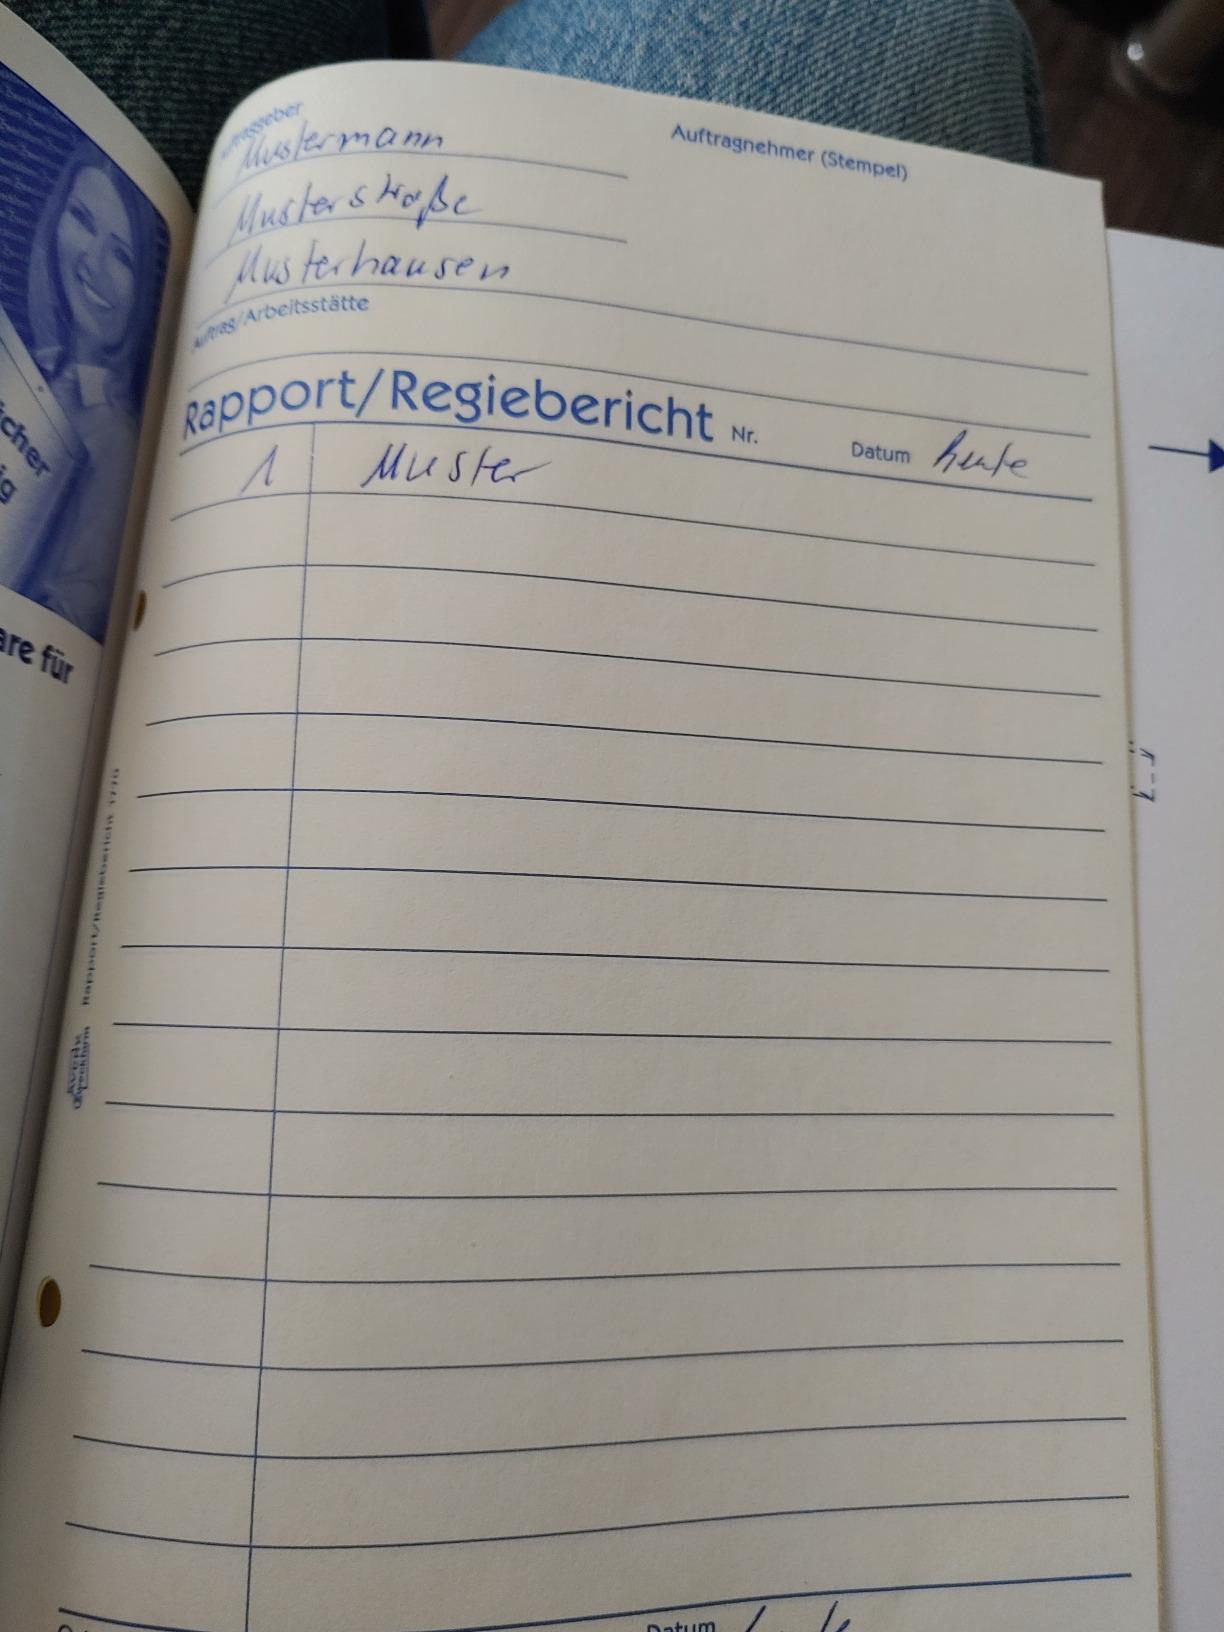 Auftraggeber
Mustermann
Auftragnehmer (Stempel)
Musterstraße
Musterhausen
Auftrag/Arbeitsstätte
Rapport/Regiebericht Nr. Datum heute
1 Muster
icher
ig
are für
Rapport/Regiebericht
Zweckform
Datum